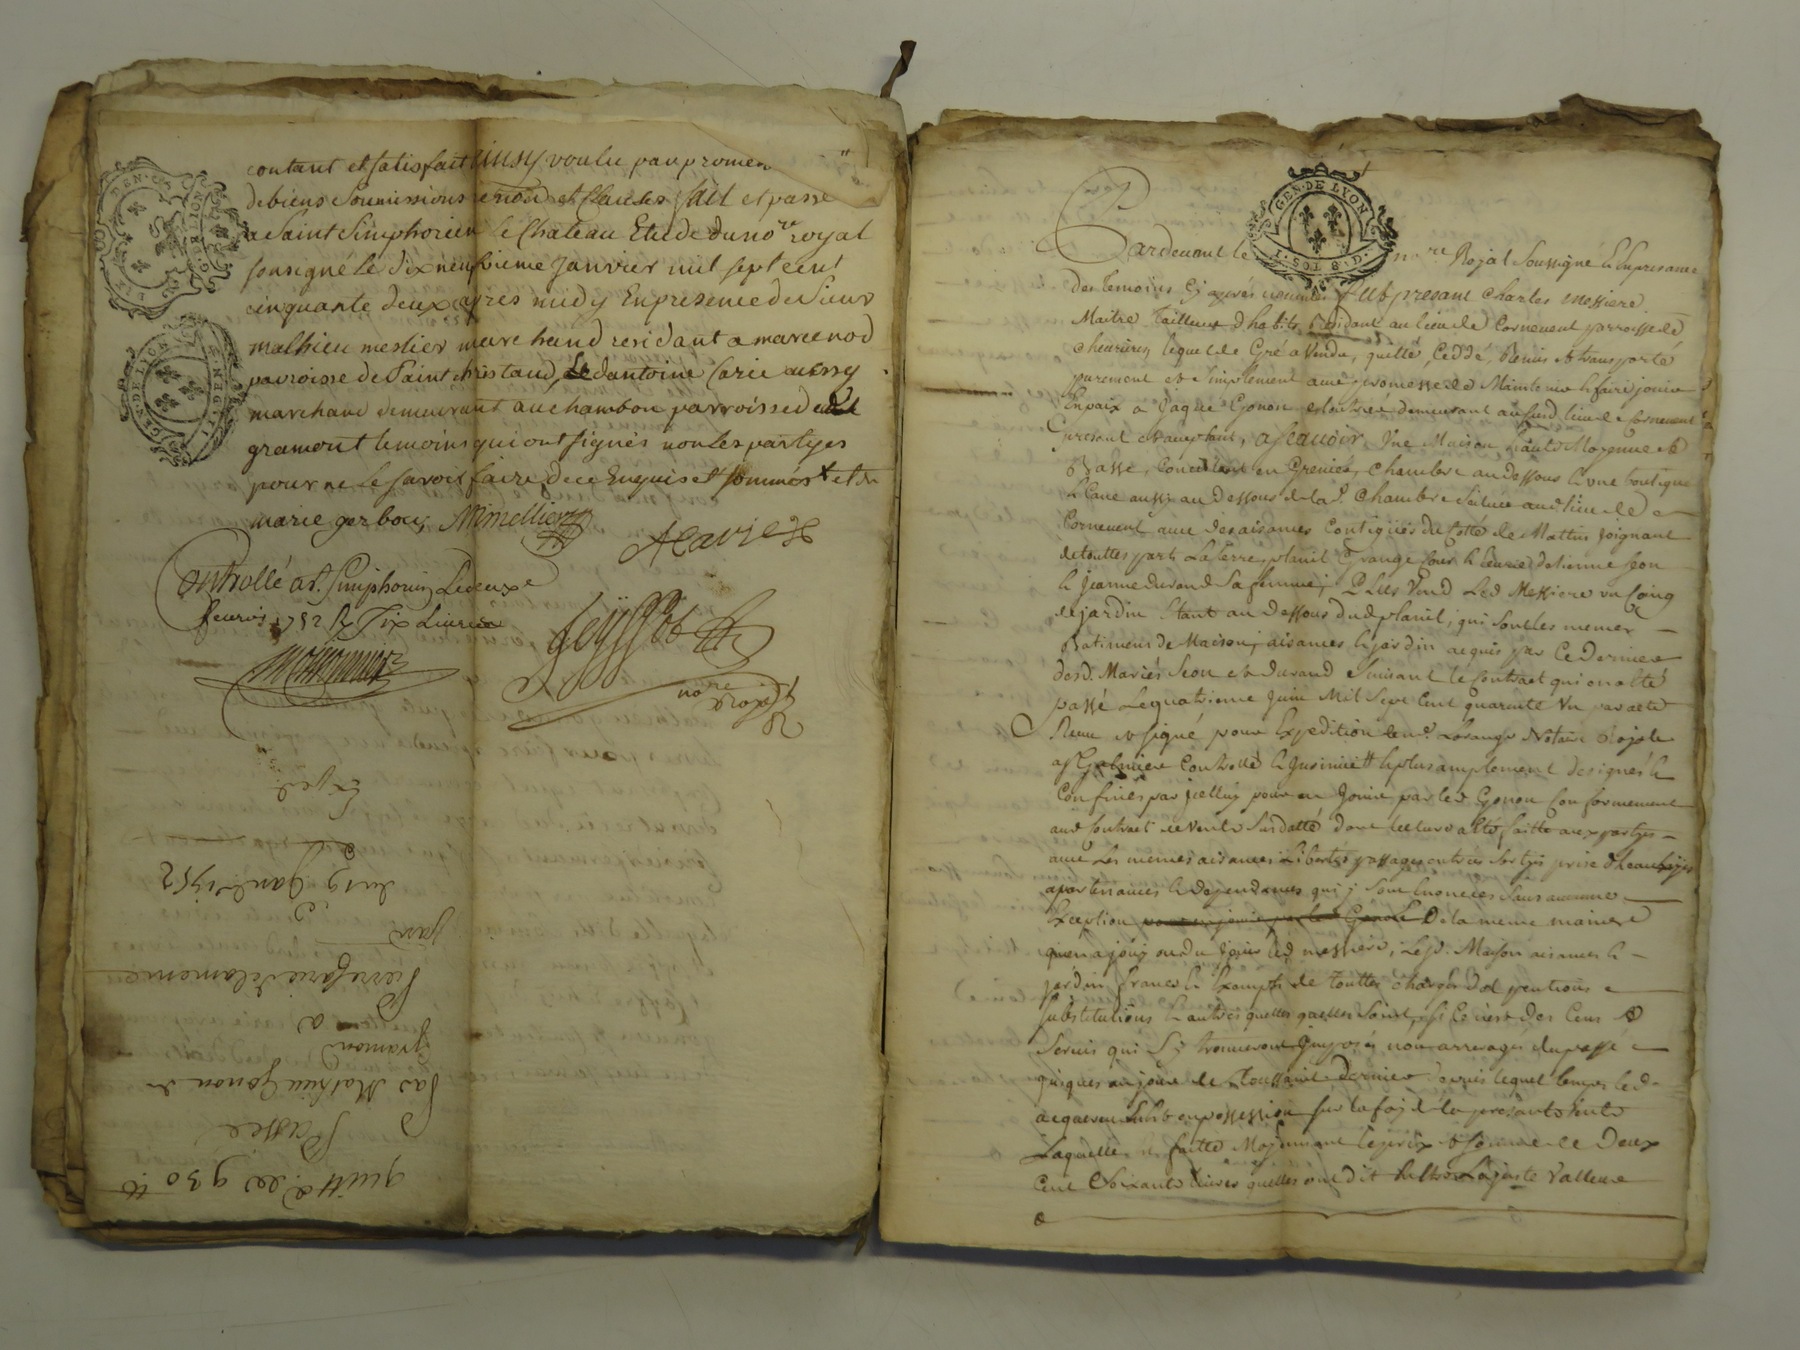 contant et satisfait ainsy voulu par promer
de biens soumissions renon et clauses fait et passé
a Saint Simphorien le Chateau Etude du no.re royal
sousigné le dix neufvieme Janvier mil sept cent
cinquante deux apres midy En presence de Sieur
mathieu meslier marchand residant a marcenod
parroisse de Saint christaud, Led antoine Carie aussy
marchand demeurant au chambon parroisse de
gramont temoins qui ont signés non les partyes
pour ne le savoir faire de ce Enquis et sommés
marie gerbou;
Controllé a St. Simphorien Le deuxe
feuvrier 1752 R Six Livres
no.re royal
GEN. DE LYON
quitt.ce de 930 tt
Passée
Par Mathieu Gonon de
gramond
a
Pierre Carie de la
par
du 19 Janv.r 1752
Exped.
GEN. DE LYON
1. SOL 8. D.
Pardevant le no.re Rojal Soussigné & En presance
des temoins Cj aprés nommés fut presant Charles Messiere
Maitre Tailleur d'habits Residant au lieu de Cornevent parroisse de
chevrieres lequel de Gré a Vendu, quitté, Ceddé, Remis & transporté
purement et simplement avec promesse de Maintenir & faire jouir
En paix a Jaque Gonon demeurant aud lieu de Cornevent
presant et acceptant, asçauoir Une Maison haute Moyenne et
Basse, Concistant en Grenier, chambre au dessous & une boutique
& Cave aussi au Dessous de lad. Chambre Scitue aud lieu de
Cornevent avec des aisances Contigues du Cotté de Mattin joignant
de touttes parts La terre, plainil, Grange, Cour & Ecurie d'etienne Seon
& Jeanne durand Sa femme; Plus Vend Led Messiere un Coing
de jardin Etant au Dessous dud plainil; qui sont les memes
Batimens de Maison, aisances & jardin acquis par Ce Dernier
desd. Mariés Seon et durand suivant le Contract qui en a Eté
passé Le quatrieme Juin Mil Sept Cent quarante Un par acte
Receu et signé pour Expedition Notaire Rojal
a St Galmier Controllé & Insinué & plus amplement designés &
Confinés par jcelluy pour en Jouir par led Gonon Conformement
aud Contract de Vente Susdatté dont lecture a Eté faitte aux partyes
avec Les memes aisances Libertés passages entrées Sortyes prise d'Eau
apartenances & dependances qui j Sont Enoncées Sans aucune
Exception De la meme maniere
qu'en a joüj ou du jouir led messiere, Lesd. Maison aisances &
jardin francs & Exempts de touttes charges dol pentions
substitutions & autres quelles quelles Soint, si Ce n'est des Cens &
Servis qui S'j trouveront Imposés non arrerages du passé
jusques au jour de Toussaint dernier depuis lequel temps led
acquereur Est En possession sur la foj de la presante Vente
Laquelle est faitte Mojennant le prix & somme de Deux
Cent Soixante Livres quelles ont dit Estre La juste Valleur